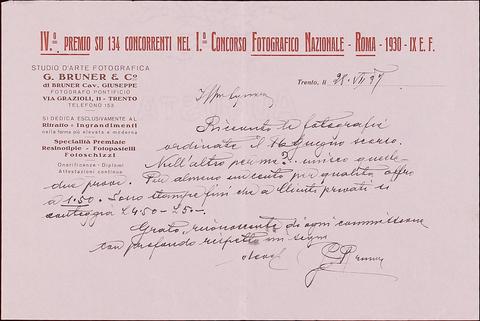 IV.º PREMIO SU 134 CONCORRENTI NEL I.º CONCORSO FOTOGRAFICO NAZIONALE - ROMA - 1930 - IX E. F.
STUDIO D'ARTE FOTOGRAFICA
G. BRUNER & Cº
di BRUNER Cav. GIUSEPPE
FOTOGRAFO PONTIFICIO
VIA GRAZIOLI, 11 - TRENTO
TELEFONO 153
SI DEDICA ESCLUSIVAMENTE AL
Ritratto - Ingrandimenti
nella forma più elevata e moderna
Specialità Premiate
Resinotipie - Fotopastelli
Fotoschizzi
Onorificenze - Diplomi
Attestazioni continue
Trento, li 28. VII. 37
Riscontro le fotografie
ordinate il 16 Giugno scorso.
Nell'altro per mi unisco quelle
due prove. Per almeno un cento per qualità offro
a 1.50. Sono stampe fini che a Clienti privati si
conteggia £ 4.50 - 25.-
Grato, riconoscente di ogni commissione
con profondo rispetto mi segno
G Bruner